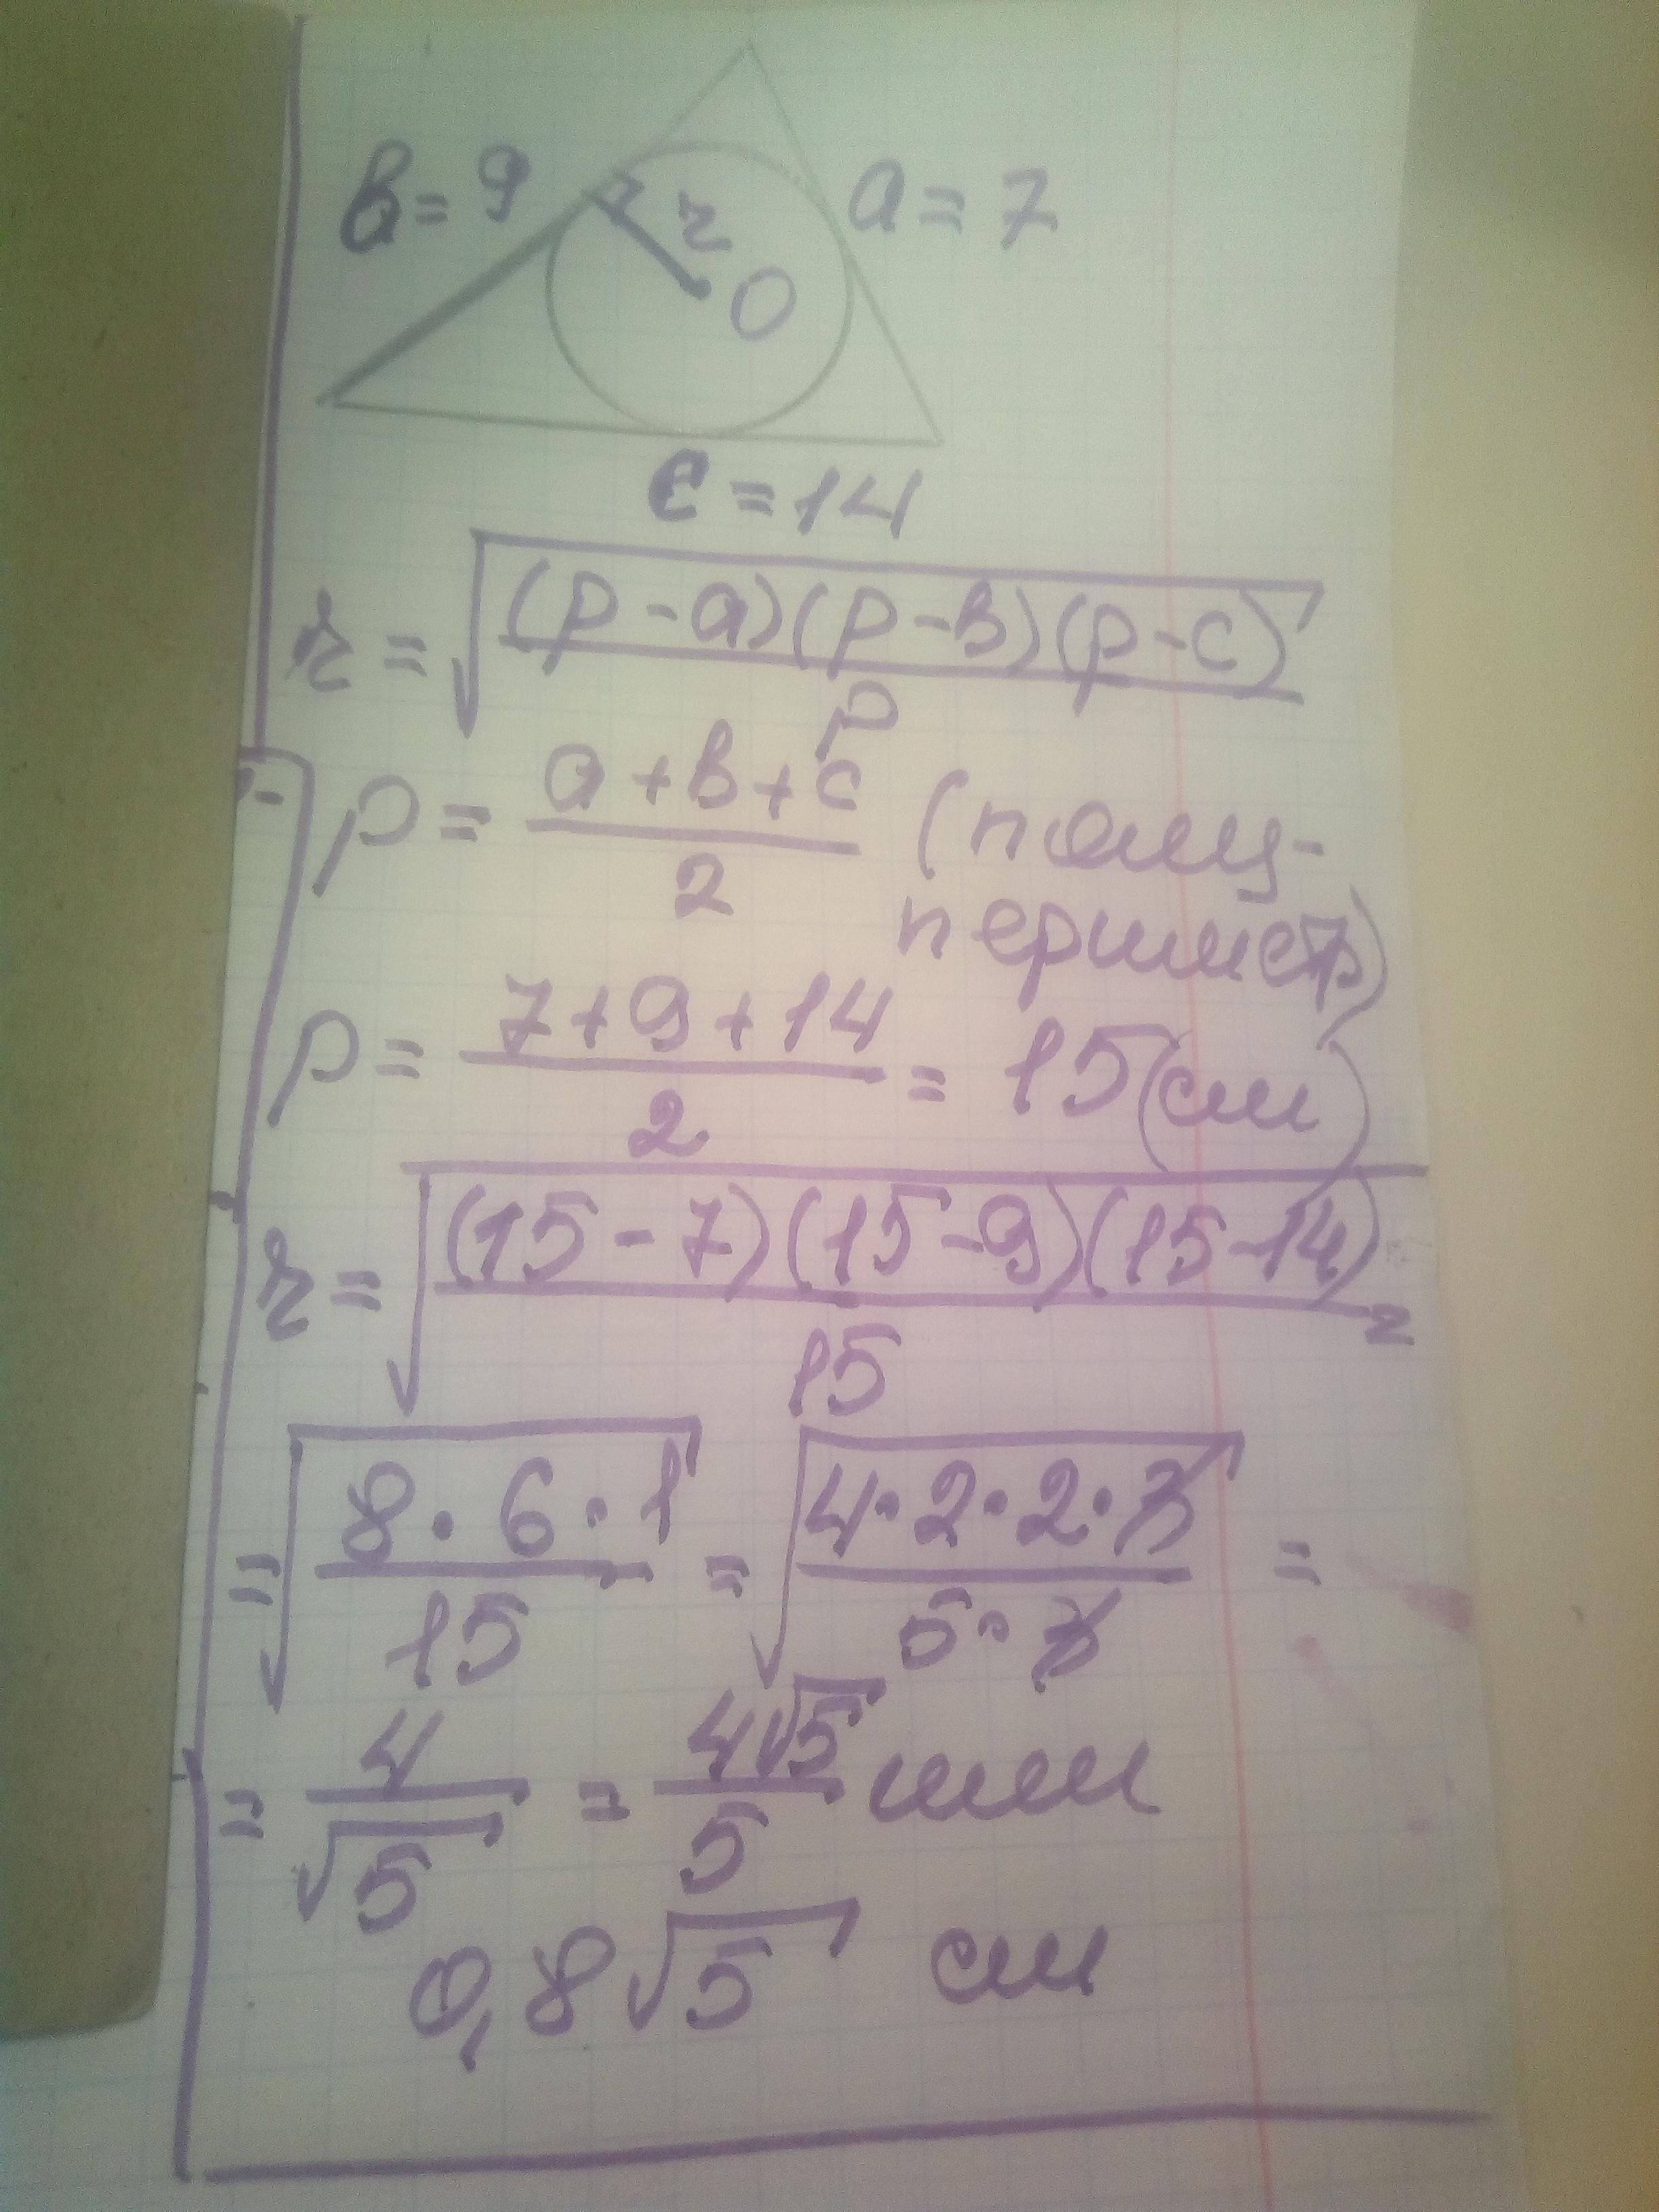 в = 9
r
a = 7
O
c = 14
r = √((p - a)(p - в)(p - c) / p)
p = (a + в + c) / 2 (полу-
периметр)
p = (7 + 9 + 14) / 2 = 15 (см)
r = √((15 - 7)(15 - 9)(15 - 14) / 15) =
= √(8 · 6 · 1 / 15) = √(4 · 2 · 2 · 3 / 5 · 3) =
= 4 / √5 = 4√5 / 5 или
0,8√5 см